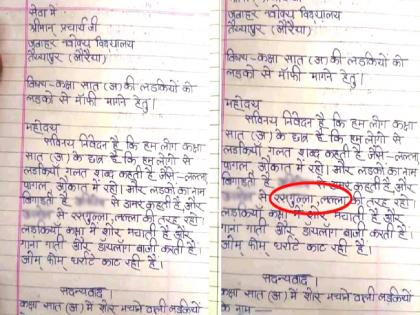 सेवा में
श्रीमान प्रचार्य जी
जवाहर नवोदय विद्यालय
तैय्यापुर (औरैया)
विषय-कक्षा सात (अ) की लडकियों को
लडको से मॉफी मांगने हेतु।
महोदय
सविनय निवेदन है कि हम लोग कक्षा
सात (अ) के छात्र है कि हम लोगो से
लडकियाँ गलत शब्द कहती है जैसे-लल्ला
पागल, औकात में रहो। और लडके का नाम
बिगाडती है से डामर कहती है और
से रसगुल्ला, लल्ला की तरह रहो।
लडकियाँ कक्षा में शोर मचाती है और
गाना गाती और डायलॉग बाजी करती है।
ओम फोम धर्राटे काट रही है।
सदन्यवाद।
कक्षा सात (अ) में शोर मचाने वाली लडकियों
श्रीमान प्रचार्य जी
जवाहर नवोदय विद्यालय
तैय्यापुर (औरैया)
विषय-कक्षा सात (अ) की लडकियों को
लडको से मॉफी मांगने हेतु।
महोदय
सविनय निवेदन है कि हम लोग कक्षा
सात (अ) के छात्र है कि हम लोगो से
लडकियाँ गलत शब्द कहती है जैसे-लल्ला
पागल, औकात में रहो। और लडके का नाम
बिगाडती है से डामर कहती है और
से रसगुल्ला, लल्ला की तरह रहो।
लडकियाँ कक्षा में शोर मचाती है और
गाना गाती और डायलॉग बाजी करती है।
ओम फोम धर्राटे काट रही है।
सदन्यवाद।
कक्षा सात (अ) में शोर मचाने वाली लडकियों
के नाम